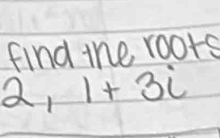 find the roots
2, 1 + 3i